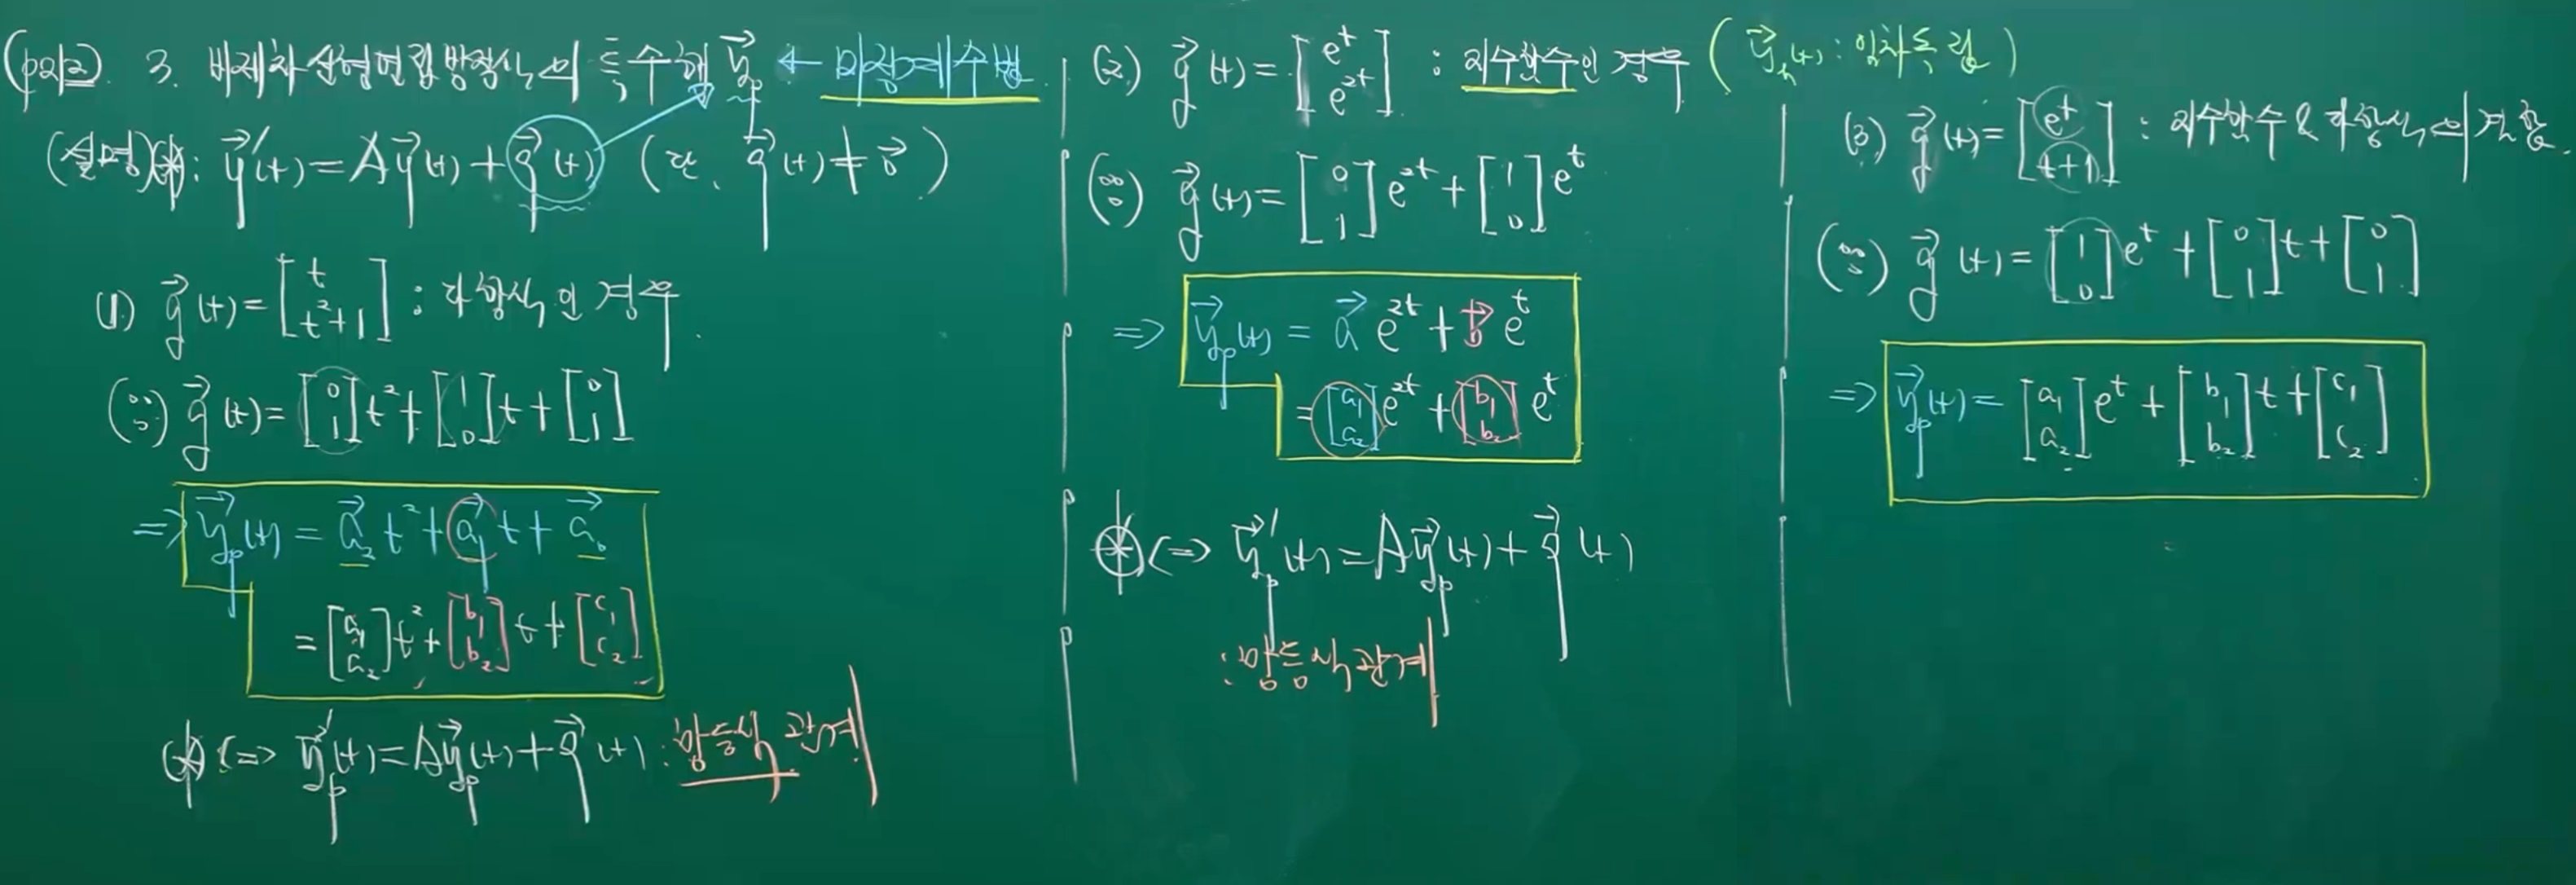 (p212) 3. 비제차 선형연립방정식의 특수해 y⃗_p ← 미정계수법
(설명) ⊛: y⃗'(t) = Ay⃗(t) + g⃗(t) (단, g⃗(t) ≠ 0⃗)
(1) g⃗(t) = [t; t²+1] : 다항식인 경우.
(∵) g⃗(t) = [0; 1]t² + [1; 0]t + [0; 1]
⇒ y⃗_p(t) = a⃗₂t² + a⃗₁t + a⃗₀
= [a₁; a₂]t² + [b₁; b₂]t + [c₁; c₂]
⊛ ⇔ y⃗_p'(t) = Ay⃗_p(t) + g⃗(t) : 항등식 관계
(2) g⃗(t) = [e^t; e^{2t}] : 지수함수인 경우 (y⃗_h(t) : 일차독립)
(∵) g⃗(t) = [0; 1]e^{2t} + [1; 0]e^t
⇒ y⃗_p(t) = a⃗ e^{2t} + b⃗ e^t
= [a₁; a₂]e^{2t} + [b₁; b₂]e^t
⊛ ⇔ y⃗_p'(t) = Ay⃗_p(t) + g⃗(t)
: 항등식 관계
(3) g⃗(t) = [e^t; t+1] : 지수함수 & 다항식의 결합.
(∵) g⃗(t) = [1; 0]e^t + [0; 1]t + [0; 1]
⇒ y⃗_p(t) = [a₁; a₂]e^t + [b₁; b₂]t + [c₁; c₂]